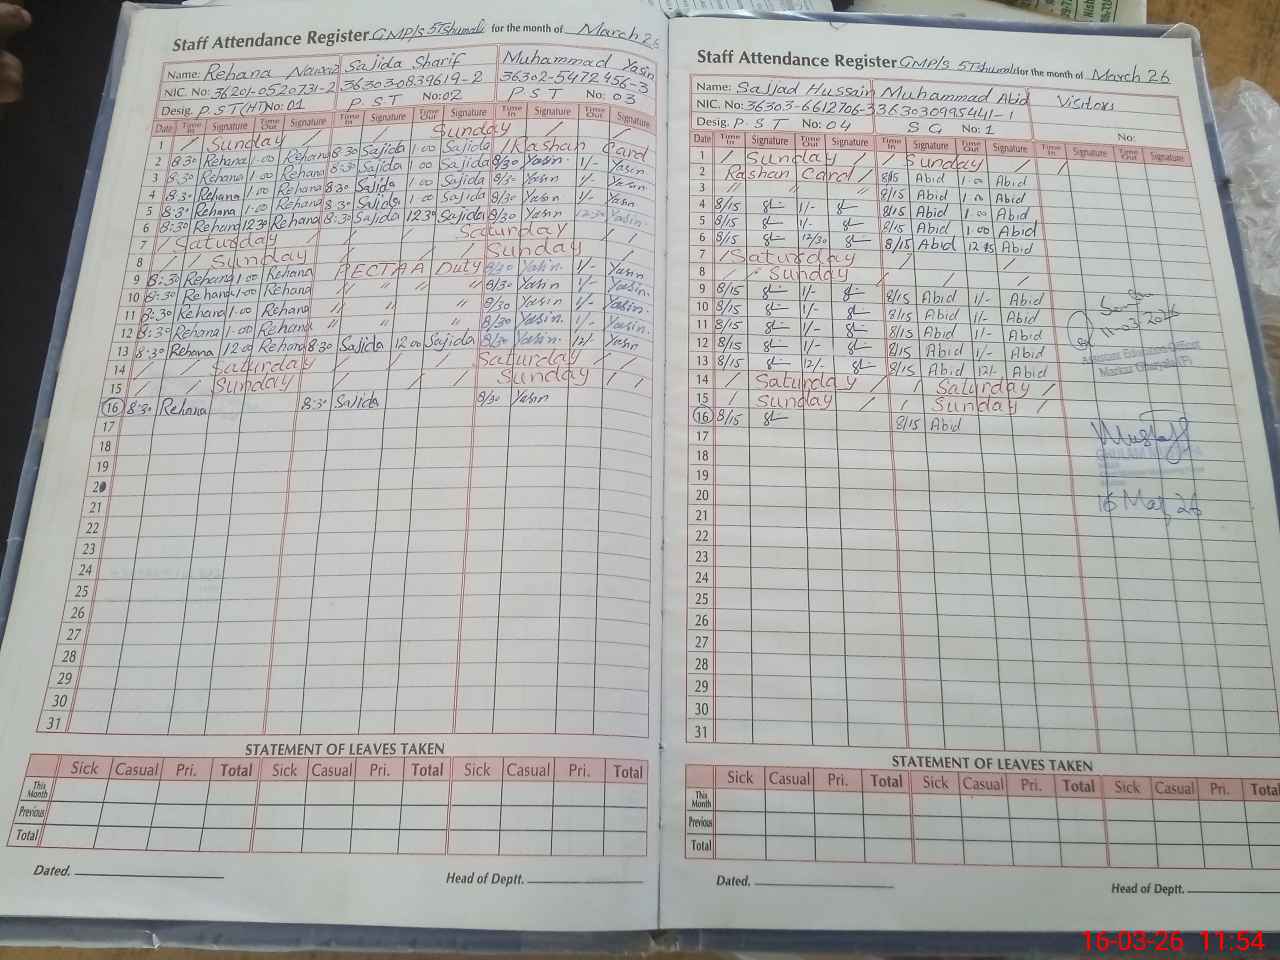 Staff Attendance Register GMP/S 5Tshumali for the month of March 26
Name: Rehana Nawaz Sajida Sharif Muhammad Yasin
NIC. No: 36201-0520731-2 36303-0839619-2 36302-5472456-3
Desig. P.S.T(HT) No: 01 P S T No: 02 P S T No: 03
Date Time In Signature Time Out Signature Time In Signature Time Out Signature Time In Signature Time Out Signature
1 / Sunday / / / Sunday / /
2 8:30 Rehana 1:00 Rehana 8:30 Sajida 1:00 Sajida / Rashan Card
3 8:30 Rehana 1:00 Rehana 8:30 Sajida 1:00 Sajida 8/30 Yasin 1/- Yasin
4 8:30 Rehana 1:00 Rehana 8:30 Sajida 1:00 Sajida 8/30 Yasin 1/- Yasin
5 8:30 Rehana 1:00 Rehana 8:30 Sajida 1:00 Sajida 8/30 Yasin 1/- Yasin
6 8:30 Rehana 12:30 Rehana 8:30 Sajida 12:30 Sajida 8/30 Yasin 12:30 Yasin
7 / Saturday / / / Saturday / /
8 / / Sunday / / Sunday / /
9 8:30 Rehana 1:00 Rehana PECTAA Duty 8/30 Yasin 1/- Yasin
10 8:30 Rehana 1:00 Rehana " " " " 8/30 Yasin 1/- Yasin
11 8:30 Rehana 1:00 Rehana " " " 8/30 Yasin 1/- Yasin
12 8:30 Rehana 1:00 Rehana " " " 8/30 Yasin 1/- Yasin
13 8:30 Rehana 12:00 Rehana 8:30 Sajida 12:00 Sajida 8/30 Yasin 12/- Yasin
14 / / Saturday / / / Saturday / /
15 / / Sunday / / / / Sunday / /
16 8:30 Rehana 8:30 Sajida 8/30 Yasin
17
18
19
20
21
22
23
24
25
26
27
28
29
30
31
STATEMENT OF LEAVES TAKEN
Sick Casual Pri. Total Sick Casual Pri. Total Sick Casual Pri. Total
This Month
Previous
Total
Dated. Head of Deptt.
Staff Attendance Register GMP/S 5Tshumali for the month of March 26
Name: Sajjad Hussain Muhammad Abid Visitors
NIC. No: 36303-6612706-3 363030995441-1
Desig. P S T No: 04 S G No: 1 No:
Date Time In Signature Time Out Signature Time In Signature Time Out Signature Time In Signature Time Out Signature
1 / Sunday / / Sunday / /
2 Rashan Card / 8/15 Abid 1:00 Abid
3 " " " 8/15 Abid 1:00 Abid
4 8/15 1/- 8/15 Abid 1:00 Abid
5 8/15 1/- 8/15 Abid 1:00 Abid
6 8/15 12/30 8/15 Abid 12:45 Abid
7 / Saturday / /
8 / / Sunday / / /
9 8/15 1/- 8/15 Abid 1/- Abid
10 8/15 1/- 8/15 Abid 1/- Abid
11 8/15 1/- 8/15 Abid 1/- Abid
12 8/15 1/- 8/15 Abid 1/- Abid
13 8/15 12/- 8/15 Abid 12/- Abid
14 / Saturday / / Saturday /
15 / Sunday / / Sunday /
16 8/15 8/15 Abid
17
18
19
20
21
22
23
24
25
26
27
28
29
30
31
11-03-2026
Assistant Education Officer
Mustafa
16 Mar 26
STATEMENT OF LEAVES TAKEN
Sick Casual Pri. Total Sick Casual Pri. Total Sick Casual Pri. Total
This Month
Previous
Total
Dated. Head of Deptt.
16-03-26 11:54